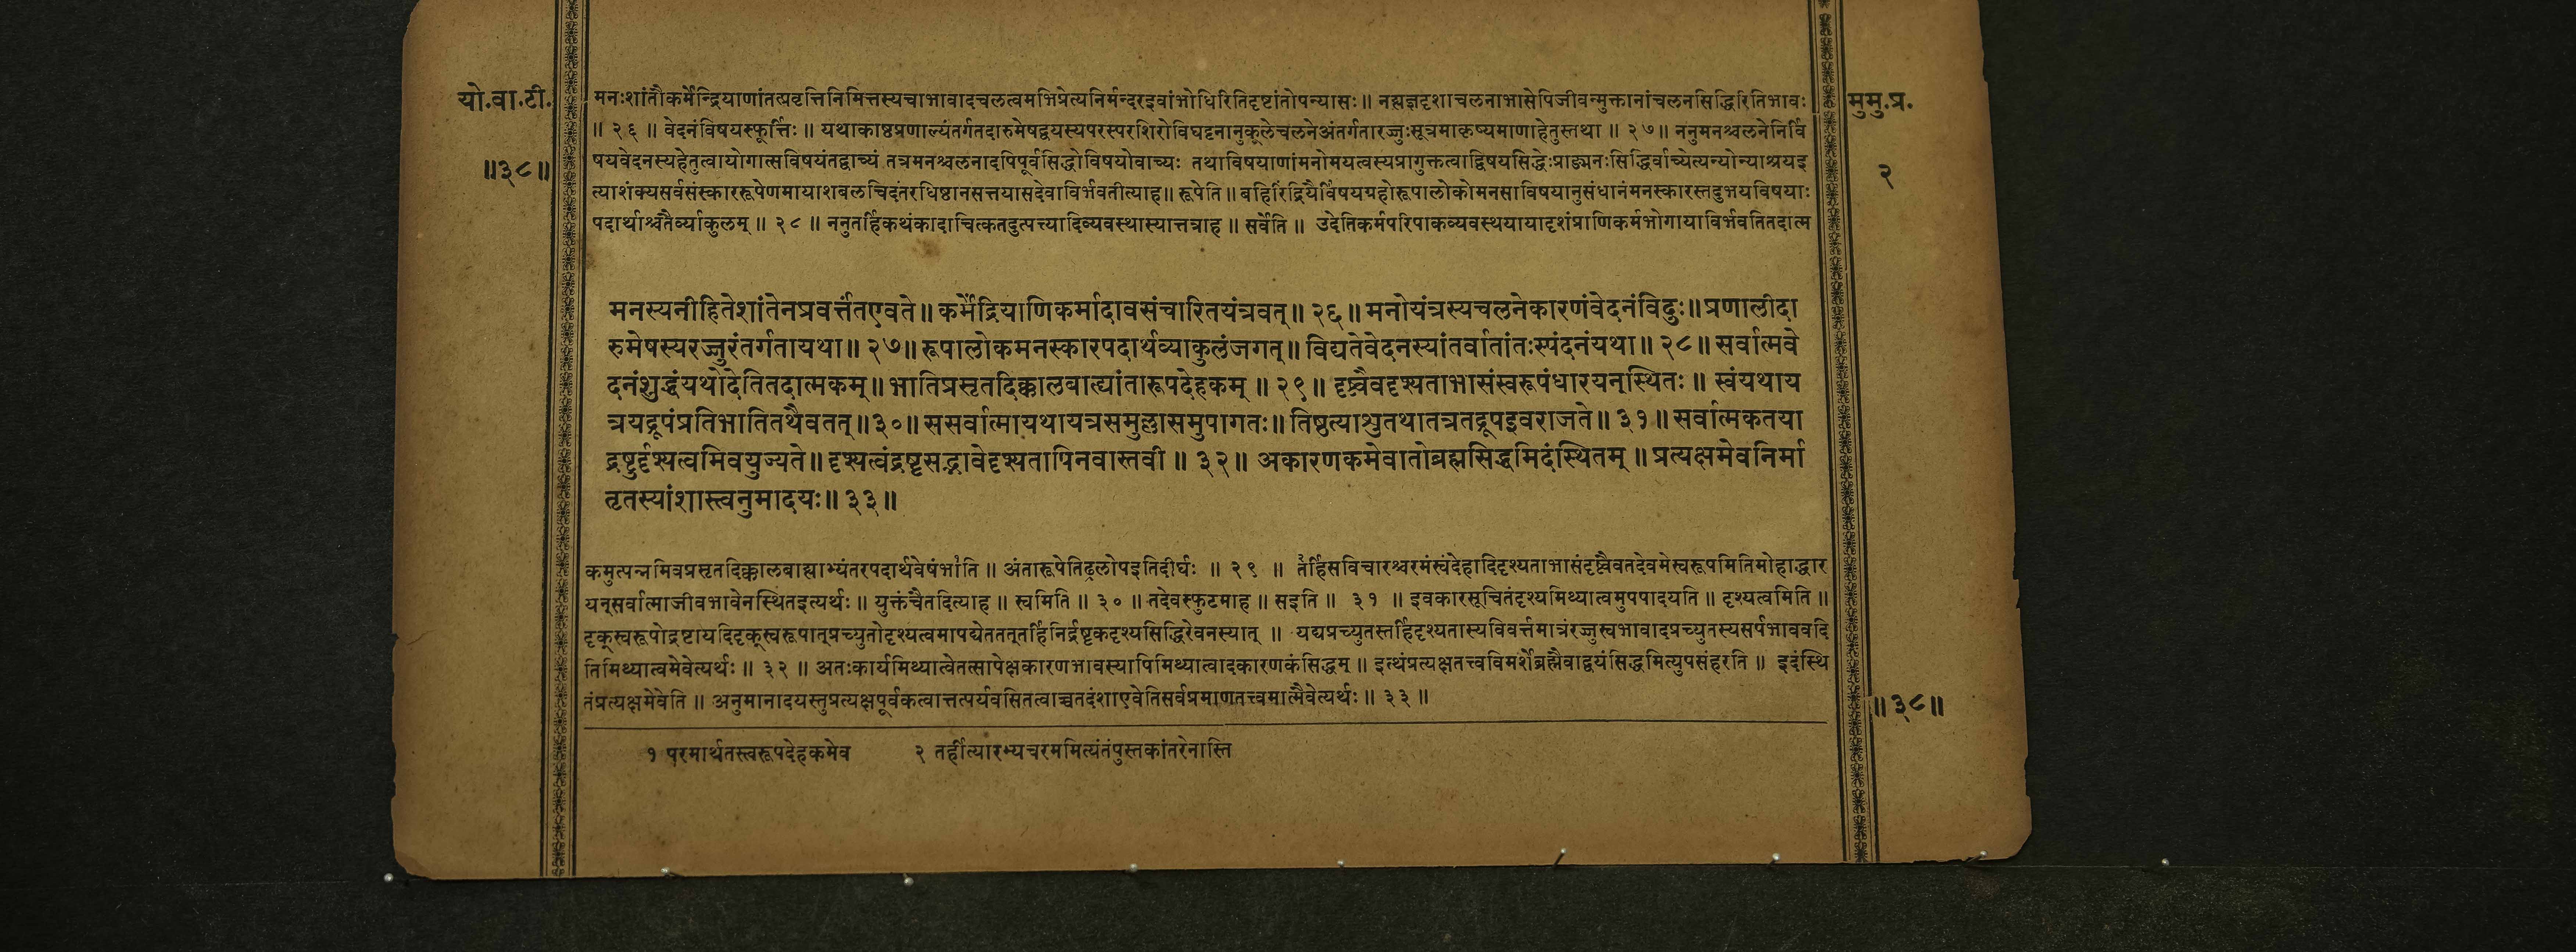 यो.वा.टी.
॥३८॥
मुमु.प्र.
२
मनःशांतौकर्मेन्द्रियाणांतत्प्रवृत्तिनिमित्तस्यचाभावादचलत्वमभिप्रेत्यनिर्मन्दरइवांभोधिरितिदृष्टांतोपन्यासः॥ नह्यज्ञदृशाचलनाभासेपिजीवन्मुक्तानांचलनसिद्धिरितिभावः
॥ २६ ॥ वेदनंविषयस्फूर्त्तिः ॥ यथाकाष्ठप्रणाल्यंतर्गतदारुमेषद्वयस्यपरस्परशिरोविघट्टनानुकूलेचलनेअंतर्गतारज्जुःसूत्रमाकृष्यमाणाहेतुस्तथा ॥ २७॥ ननुमनश्चलनेनिर्वि
षयवेदनस्यहेतुत्वायोगात्सविषयंतद्वाच्यं तत्रमनश्चलनादपिपूर्वसिद्धोविषयोवाच्यः तथाविषयाणांमनोमयत्वस्यप्रागुक्तत्वाद्विषयसिद्धेःप्राङ्मनःसिद्धिर्वाच्येत्यन्योन्याश्रयइ
त्याशंक्यसर्वसंस्काररूपेणमायाशबलचिदंतरधिष्ठानसत्तयासदेवाविर्भवतीत्याह॥ रूपेति ॥ बहिरिंद्रियैर्विषयग्रहोरूपालोकोमनसाविषयानुसंधानंमनस्कारस्तदुभयविषयाः
पदार्थाश्चतैर्व्याकुलम् ॥ २८ ॥ ननुतर्हिकथंकादाचित्कतदुत्पत्त्यादिव्यवस्थास्यात्तत्राह ॥ सर्वेति ॥ उदेतिकर्मपरिपाकव्यवस्थयायादृशंप्राणिकर्मभोगायाविर्भवतितदात्म
मनस्यनीहितेशांतेनप्रवर्त्तंतएवते॥ कर्मेंद्रियाणिकर्मादावसंचारितयंत्रवत्॥ २६॥ मनोयंत्रस्यचलनेकारणंवेदनंविदुः॥प्रणालीदा
रुमेषस्यरज्जुरंतर्गतायथा॥ २७॥ रूपालोकमनस्कारपदार्थव्याकुलंजगत्॥ विद्यतेवेदनस्यांतर्वातांतःस्पंदनंयथा॥ २८॥ सर्वात्मवे
दनंशुद्धंयथोदेतितदात्मकम्॥ भातिप्रसृतदिक्कालबाह्यांतारूपदेहकम् ॥ २९॥ दृष्ट्वैवदृश्यताभासंस्वरूपंधारयन्स्थितः॥ स्वंयथाय
त्रयद्रूपंप्रतिभातितथैवतत्॥३०॥ ससर्वात्मायथायत्रसमुल्लासमुपागतः॥ तिष्ठत्याशुतथातत्रतद्रूपइवराजते॥ ३१॥ सर्वात्मकतया
द्रष्टुर्दृश्यत्वमिवयुज्यते॥ दृश्यत्वंद्रष्टृसद्भावेदृश्यतापिनवास्तवी ॥ ३२॥ अकारणकमेवातोब्रह्मसिद्धमिदंस्थितम् ॥ प्रत्यक्षमेवनिर्मा
तृतस्यांशास्त्वनुमादयः॥ ३३॥
कमुत्पन्नमिवप्रसृतदिक्कालबाह्याभ्यंतरपदार्थवेषंभा१ति ॥ अंतारूपेतिढ्रलोपइतिदीर्घः ॥ २९ ॥ त२र्हिसविचारश्चरमंस्वंदेहादिदृश्यताभासंदृष्ट्वैवतदेवमेस्वरूपमितिमोहाद्धार
यन्सर्वात्माजीवभावेनस्थितइत्यर्थः॥ युक्तंचैतदित्याह ॥ स्वमिति ॥ ३० ॥ तदेवस्फुटमाह ॥ सइति ॥ ३१ ॥ इवकारसूचितंदृश्यमिथ्यात्वमुपपादयति ॥ दृश्यत्वमिति ॥
दृक्स्वरूपोद्रष्टायदिदृक्स्वरूपात्प्रच्युतोदृश्यत्वमापद्येततत्तर्हिनिर्द्रष्टृकदृश्यसिद्धिरेवनस्यात् ॥ यद्यप्रच्युतस्तर्हिदृश्यतास्यविवर्त्तमात्रंरज्जुस्वभावादप्रच्युतस्यसर्पभाववदि
तिमिथ्यात्वमेवेत्यर्थः॥ ३२ ॥ अतःकार्यमिथ्यात्वेतत्सापेक्षकारणभावस्यापिमिथ्यात्वादकारणकंसिद्धम्॥ इत्थंप्रत्यक्षतत्त्वविमर्शेब्रह्मैवाद्वयंसिद्धमित्युपसंहरति ॥ इदंस्थि
तंप्रत्यक्षमेवेति ॥ अनुमानादयस्तुप्रत्यक्षपूर्वकत्वात्तत्पर्यवसितत्वाच्चतदंशाएवेतिसर्वप्रमाणतत्त्वमात्मैवेत्यर्थः॥ ३३ ॥
॥३८॥
१ परमार्थतस्त्वरूपदेहकमेव २ तर्हीत्यारभ्यचरममित्यंतंपुस्तकांतरेनास्ति